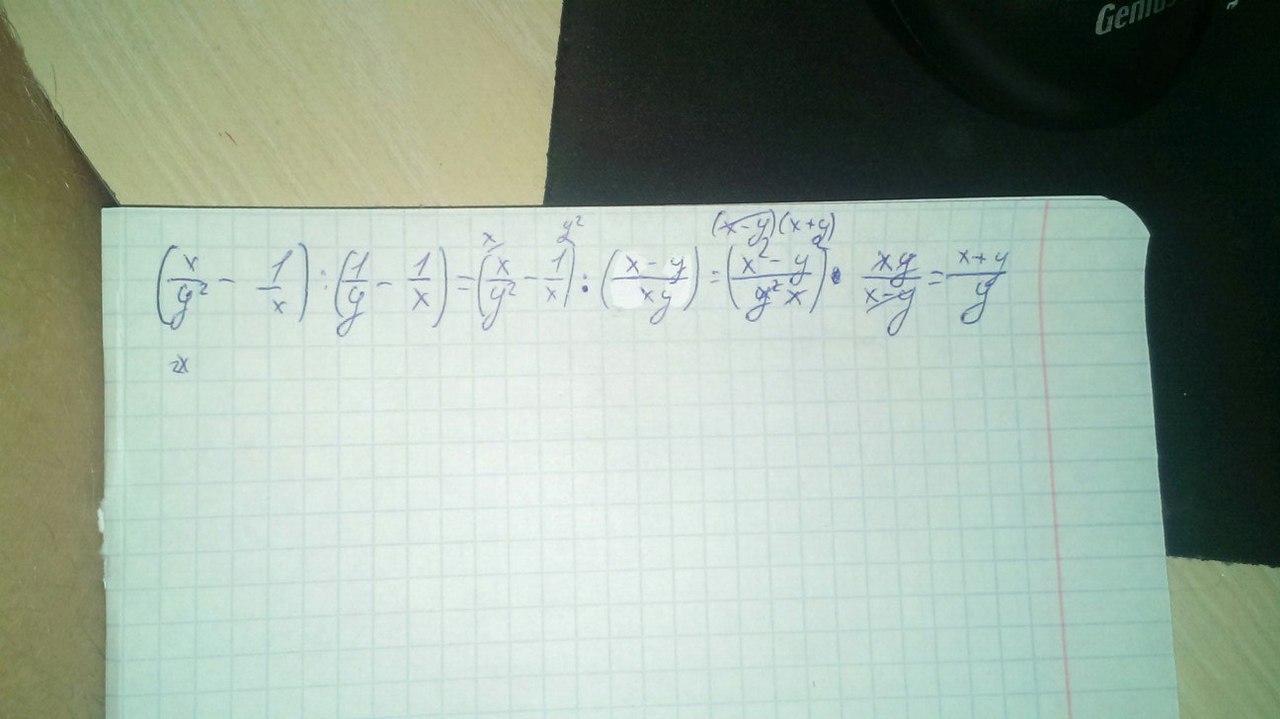 Genius
(x-y)(x+y)
(x/y² - 1/x) : (1/y - 1/x) = (x/y² - 1/x) : (x-y/xy) = (x²-y²/y²x) · xy/x-y = x+y/y
x y²
=x